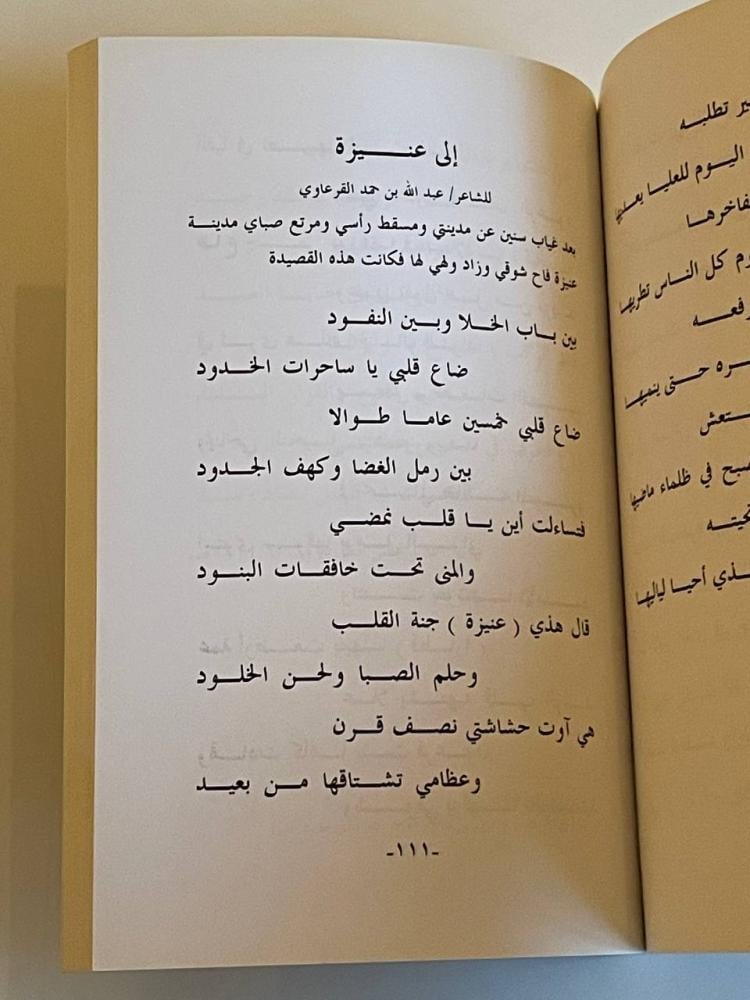 إلى عنيزة
للشاعر/ عبد الله بن حمد القرعاوي
بعد غياب سنين عن مدينتي ومسقط رأسي ومرتع صباي مدينة
عنيزة فاح شوقي وزاد ولهي لها فكانت هذه القصيدة
بين باب الخلا وبين النفود
ضاع قلبي يا ساحرات الخدود
ضاع قلبي خمسين عاما طوالا
بين رمل الغضا وكهف الجدود
فتساءلت أين يا قلب نمضي
والمنى تحت خافقات البنود
قال هذي ( عنيزة ) جنة القلب
وحلم الصبا ولحن الخلود
هي آوت حشاشتي نصف قرن
وعظامي تشتاقها من بعيد
-١١١-
تطلبه
اليوم للعليا
كل الناس تطريها
حتى
في ظلماء ماضيها
أحيا لياليها